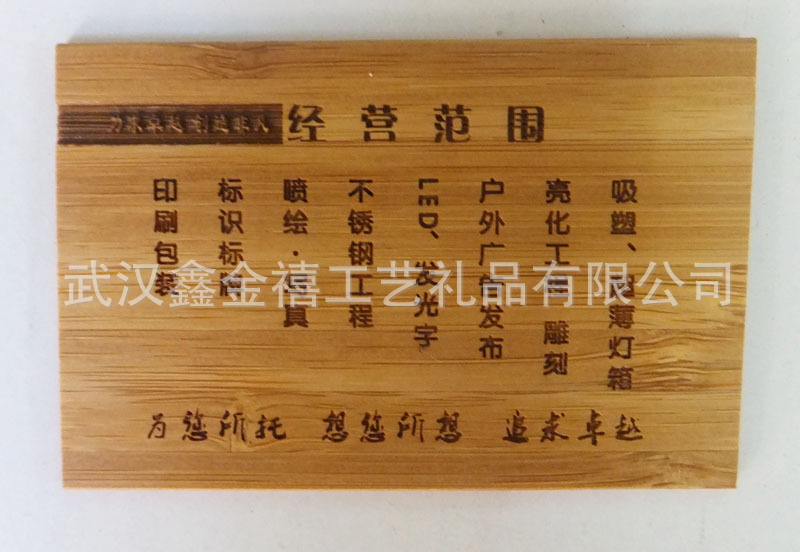 力求卓越 创造非
经营范围
吸塑、超薄灯箱
亮化工程 雕刻
户外广告发布
LED、发光字
不锈钢工程
喷绘·写真
标识标牌
印刷包装
为您所托 想您所想 追求卓越
武汉鑫金禧工艺礼品有限公司